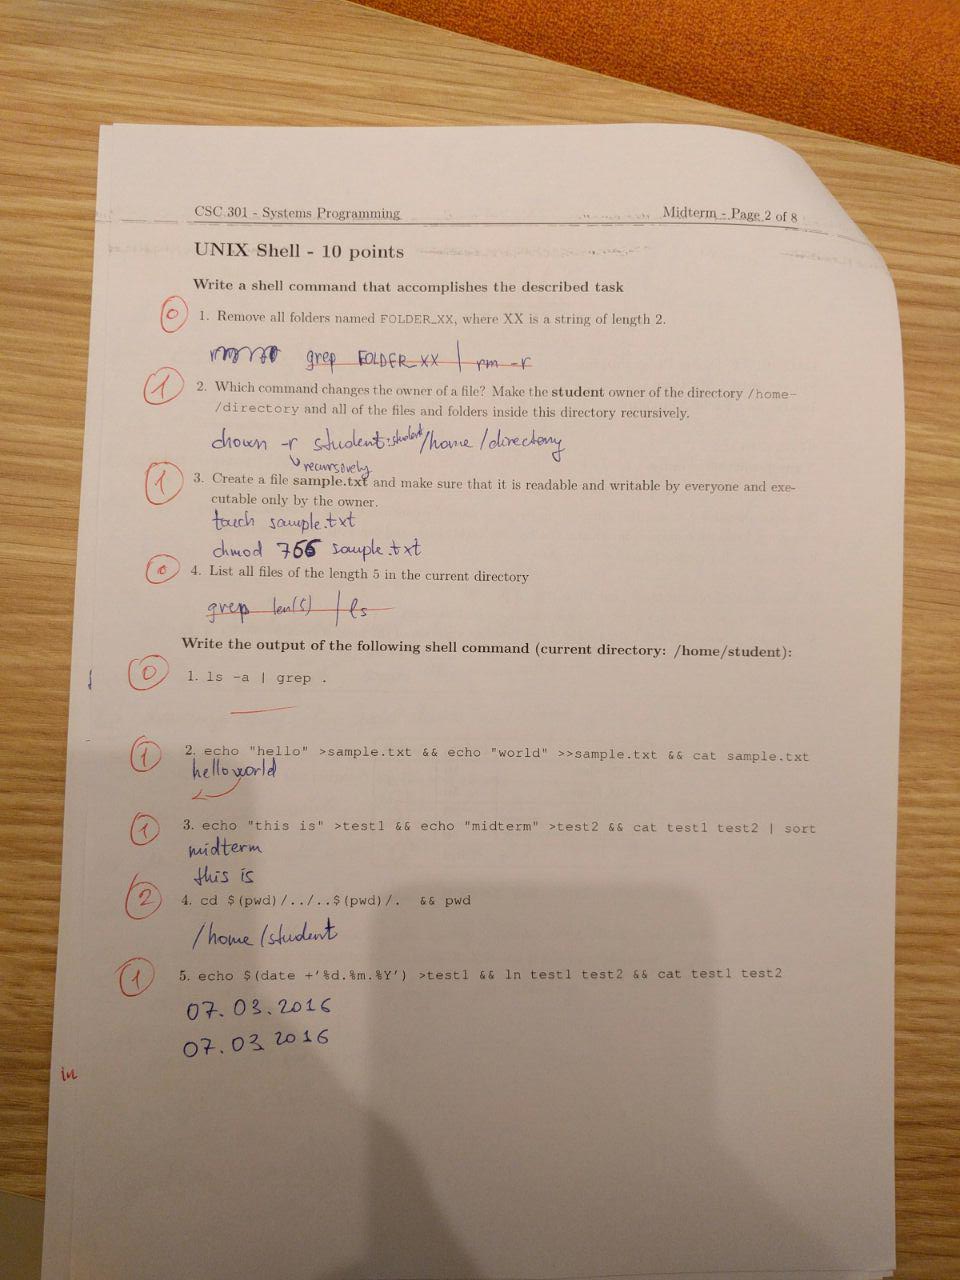 CSC 301 - Systems Programming
Midterm - Page 2 of 8
UNIX Shell - 10 points
Write a shell command that accomplishes the described task
0
1. Remove all folders named FOLDER_XX, where XX is a string of length 2.
grep FOLDER_XX | rm -r
1
2. Which command changes the owner of a file? Make the student owner of the directory /home-
/directory and all of the files and folders inside this directory recursively.
chown -r student:student /home/directory
recursively
1
3. Create a file sample.txt and make sure that it is readable and writable by everyone and exe-
cutable only by the owner.
touch sample.txt
chmod 766 sample.txt
0
4. List all files of the length 5 in the current directory
grep len(5) | ls
Write the output of the following shell command (current directory: /home/student):
0
1. ls -a | grep .
1
2. echo "hello" >sample.txt && echo "world" >>sample.txt && cat sample.txt
hello world
1
3. echo "this is" >test1 && echo "midterm" >test2 && cat test1 test2 | sort
midterm
this is
2
4. cd $(pwd)/../..$(pwd)/. && pwd
/home/student
1
5. echo $(date +'%d.%m.%Y') >test1 && ln test1 test2 && cat test1 test2
07.03.2016
07.03 2016
in